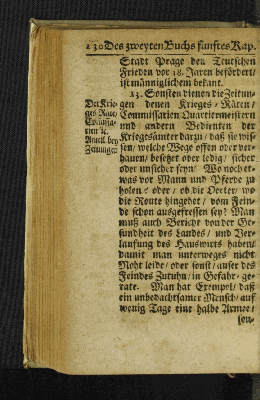 230 Des zweyten Buchs fünftes Kap.
Stadt Prage den Teutschen
Frieden vor 18. Jaren befördert/
ist männiglichem bekant.
13. Sonsten dienen die Zeitun-
gen denen Krieges-Räten/
Commissarien Quartiermeistern
und andern Bedienten der
Kriegsämter darzu/ daß sie wis-
sen/ welche Wege offen oder ver-
hauen/ besetzet oder ledig/ sicher
oder unsicher seyn: Wo noch et-
was vor Mann und Pferde zu
holen oder/ ob die Oerter/ wo
die Route hingehet/ vom Fein-
de schon ausgefressen sey? Man
muß auch Bericht von der Ge-
sundheit des Landes/ und Ver-
laufung des Hauswirts haben/
damit man unterweges nicht
Noht leide/ oder sonst/ ausser des
Feindes Zutuhn/ in Gefahr ge-
rate. Man hat Exempel/ daß
ein unbedachtsamer Mensch/ auf
wenig Tage eine halbe Armee/
Der Krie-
ges Räte/
Commissa-
rien ꝛc.
Zeitungen